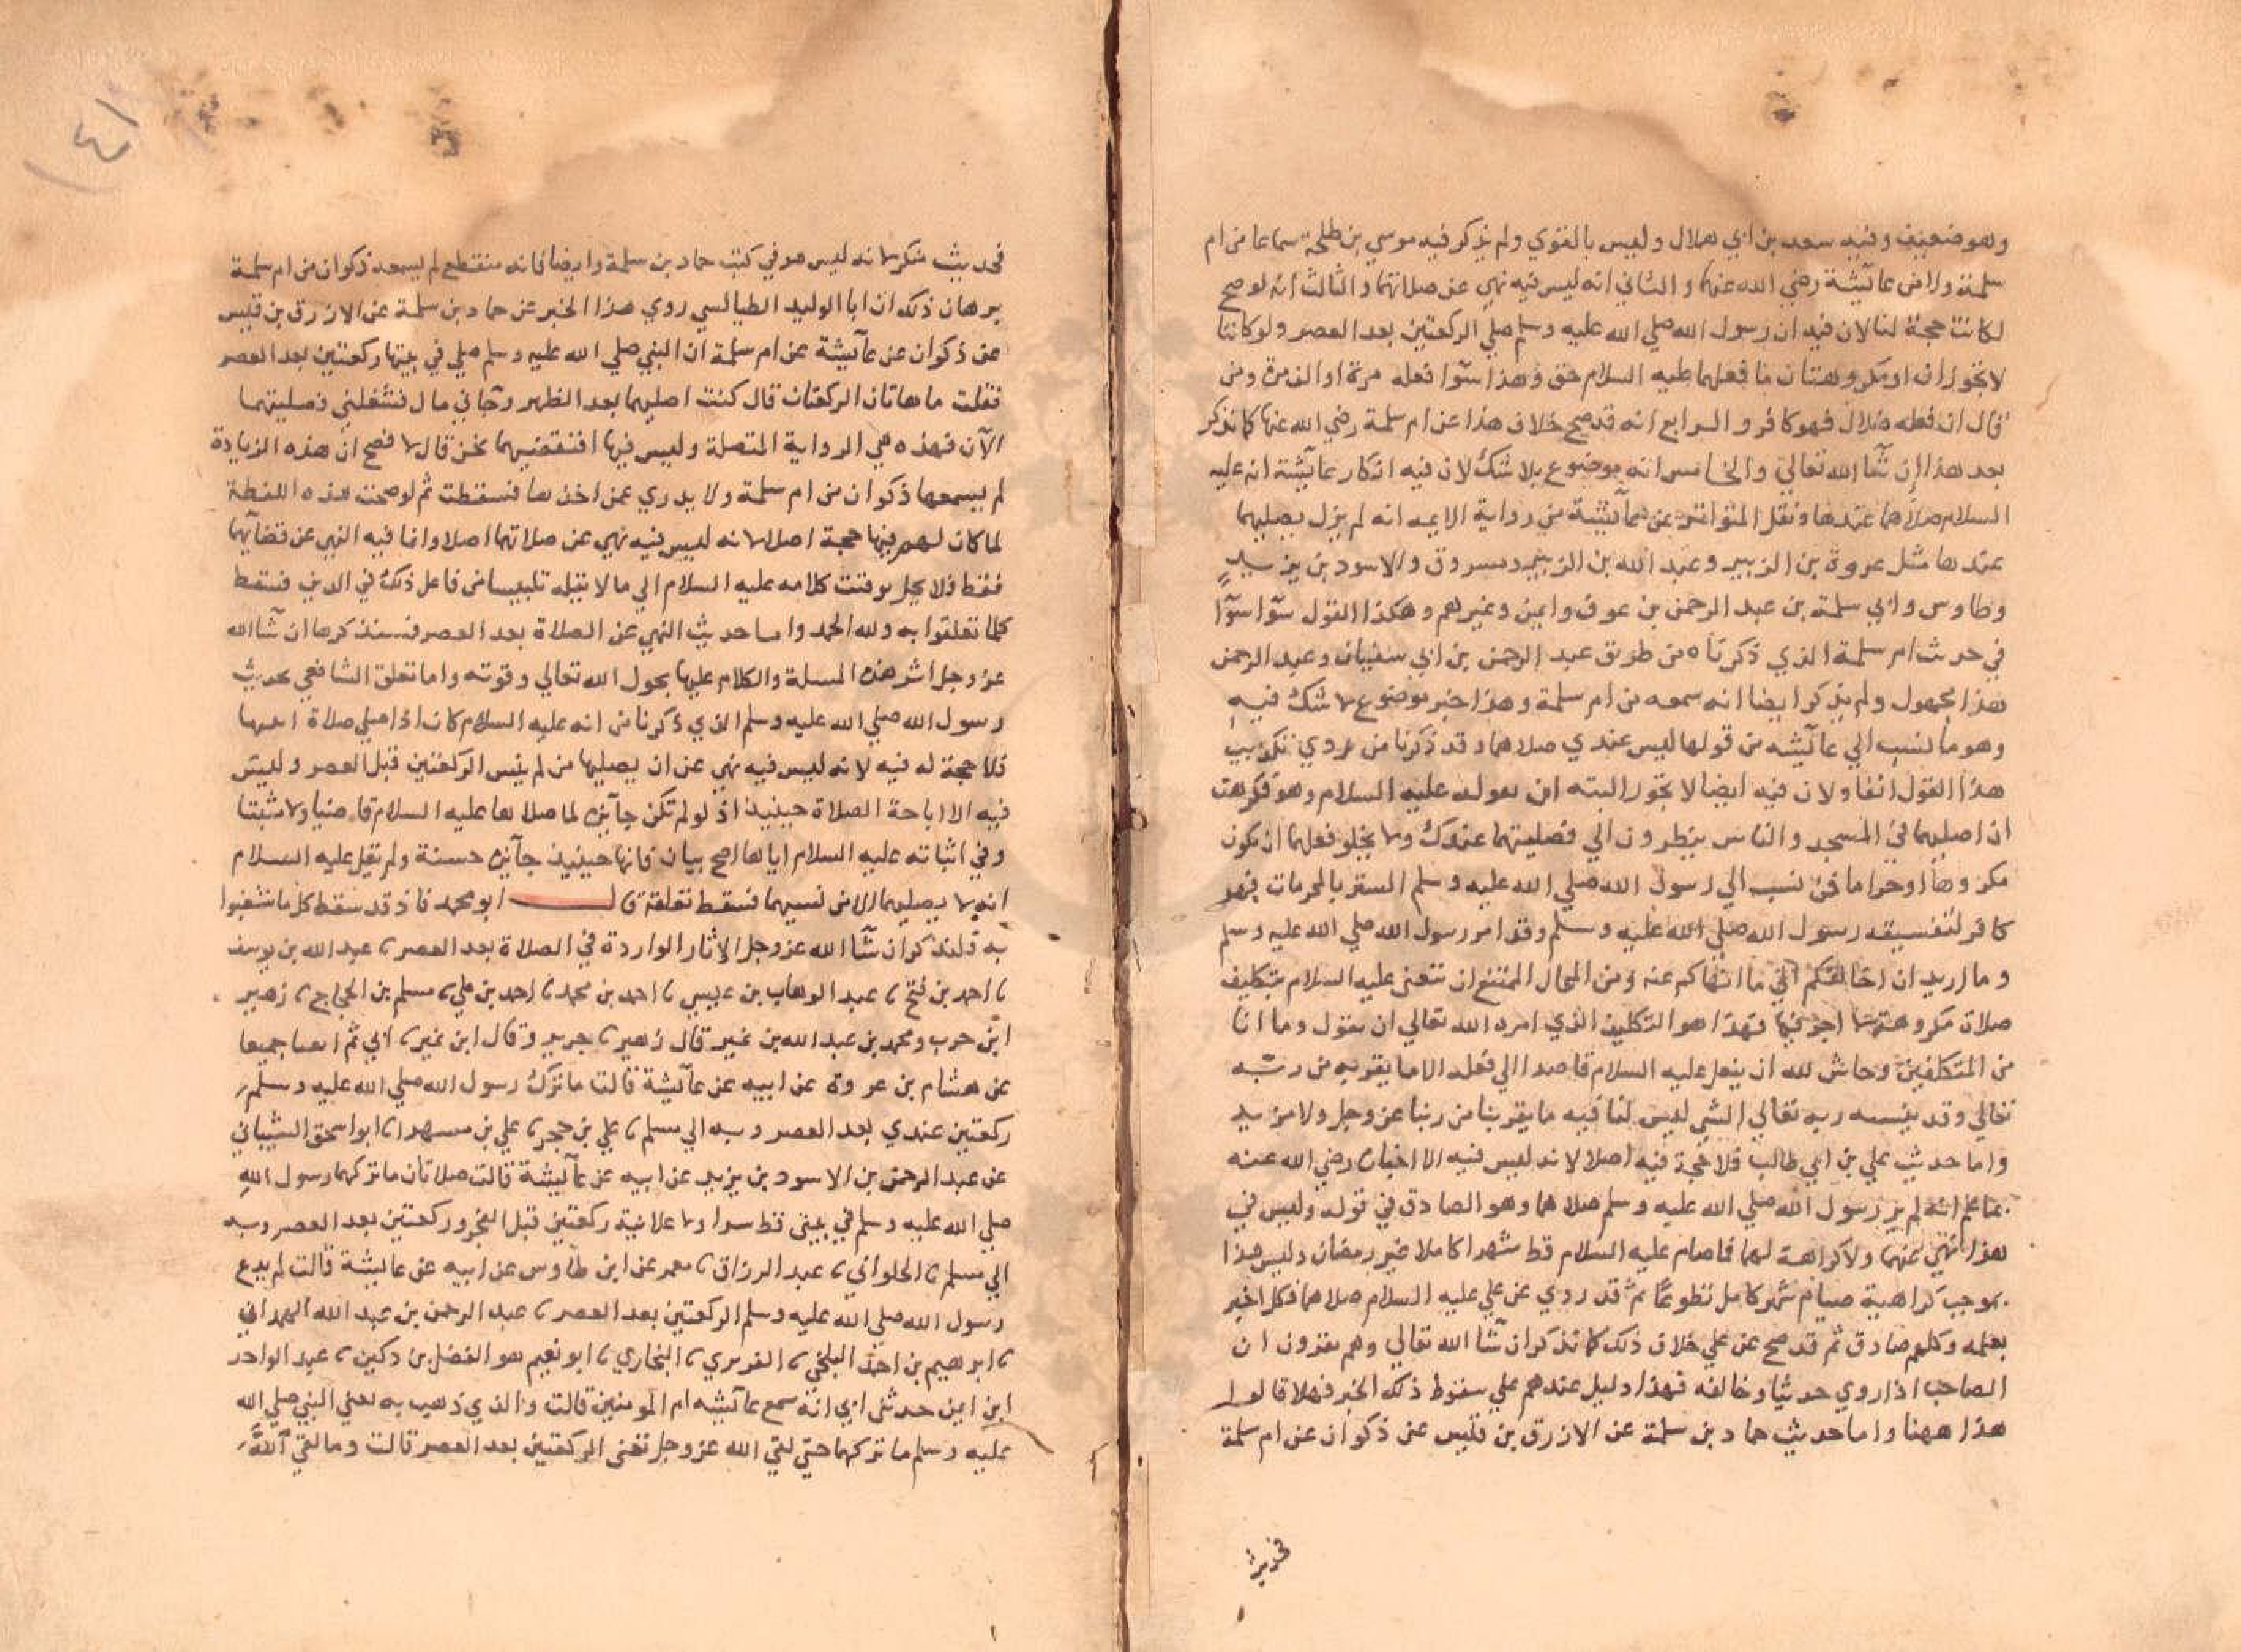 وهو ضعيف وفيه سعيد بن ابي هلال وليس بالقوي ولم يذكر فيه موسي بن طلحة سماعا من ام
سلمة ولا من عآئشة رضي الله عنهما والثاني انه ليس فيه نهي عن صلاتهما والثالث انه لو صح
لكانت حجة لنا لان فيه ان رسول الله صلي الله عليه وسلم صلي الركعتين بعد العصر ولو كانتا
لا تجوزان او مكروهتان ما فعلهما عليه السلام حق وهذا سوآ فعله مرة او الف مرة ومن
قال ان فعله ضلال فهو كافر والرابع انه قد صح خلاف هذا عن ام سلمة رضي الله عنها كما نذكر
بعد هذا ان شآ الله تعالي والخامس انه موضوع بلا شك لان فيه انكار عايشة انه عليه
السلام صلاهما عندها ونقل المتواتر عن عآئشة من رواية الايمه انه لم يزل يصليهما
عندها مثل عروة بن الزبير وعبد الله بن الزبير ومسروق والاسود بن يزيد
وطاوس وابي سلمة بن عبد الرحمن بن عوف وايمن وغيرهم وهكذا القول سوآ سوآ
في حدث ام سلمة الذي ذكرناه من طريق عبد الرحمن بن ابي سفيان وعبد الرحمن
هذا مجهول ولم يذكر ايضا انه سمعه من ام سلمة وهذا خبر موضوع لا شك فيه
وهو ما نسب الي عآئشه من قولها ليس عندي صلاهما وقد ذكرنا من روي تكذيب
هذا القول انفا ولان فيه ايضا لا يجوز البته ان يقوله عليه السلام وهو فكرهت
ان اصليهما في المسجد والناس ينظرون الي فصليتهما عندك ولا يخلو فعلهما ان يكون
مكروها او حراما فمن نسب الي رسول الله صلي الله عليه وسلم التستر بالمحرمات فهو
كافر لتفسيقه رسول الله صلي الله عليه وسلم وقد امر رسول الله صلي الله عليه وسلم
وما اريد ان اخالفكم الي ما انهاكم عنه ومن المحال الممتنع ان يتعنى عليه السلام بتكليف
صلاة مكروهة لا اجر فيها فهذا هو التكليف الذي امره الله تعالي ان يقول وما انا
من المتكلفين وحاش لله ان يفعل عليه السلام قاصدا الي فعله الا ما يقربه من ربه
تعالي وقد ينسه ربه تعالي الشي ليس لنا فيه ما يقربنا من ربنا عز وجل ولا مزيد
واما حديث علي بن ابي طالب فلا حجة فيه اصلا لانه ليس فيه الا اخباره رضي الله عنه
بما علم انه لم ير رسول الله صلي الله عليه وسلم صلاهما وهو الصادق في قوله وليس في
هذا نهي عنهما ولا كراهة لهما فما صام عليه السلام قط شهرا كاملا غير رمضان وليس هذا
بموجب كراهية صيام شهر كامل تطوعا ثم قد روي عن علي عليه السلام صلاهما فكل اخبر
بعلمه وكلهم صادق ثم قد صح عن علي خلاف ذلك كما نذكر ان شآ الله تعالي وهم يقرون ان
الصاحب اذا روي حديثا وخالفه فهذا دليل عندهم علي سقوط ذلك الخبر فهلا قالوا
هذا ههنا واما حديث حماد بن سلمة عن الازرق بن قيس عن ذكوان عن ام سلمة
فحديث
١٤
فحديث منكر لانه ليس هو في كتب حماد بن سلمة وايضا فانه منقطع لم يسمعه ذكوان من ام سلمة
برهان ذلك ان ابا الوليد الطيالسي روي هذا الخبر عن حماد بن سلمة عن الازرق بن قيس
عن ذكوان عن عآيشة عن ام سلمة ان النبي صلي الله عليه وسلم صلي في بيتها ركعتين بعد العصر
فقلت ما هاتان الركعتان قال كنت اصليهما بعد الظهر وجآني مال فشغلني فصليتهما
الآن فهذه هي الرواية المتصلة وليس فيها افنقضيهما نحن قال لا فصح ان هذه الزيادة
لم يسمعها ذكوان من ام سلمة ولا يدري عمن اخذها فسقطت ثم لو صحت هذه اللفظة
لما كان لهم فيها حجة اصلا لانه ليس فيه نهي عن صلاتهما اصلا وانما فيه النهي عن قضآيهما
فقط فلا يحل توقيت كلامه عليه السلام الي ما لا يقبله تلبيسا من فاعل ذلك في الدين فسقط
كلما تعلقوا به ولله الحمد واما حديث النهي عن الصلاة بعد العصر فسنذكرها ان شآ الله
عز وجل اثر هذه المسلة والكلام عليها بحول الله تعالي وقوته واما تعلق الشافعي بحديث
رسول الله صلي الله عليه وسلم الذي ذكرنا من انه عليه السلام كان اذا صلي صلاة اثبتها
فلا حجة له فيه لانه ليس فيه نهي عن ان يصليها من لم ينس الركعتين قبل العصر وليس
فيه الا اباحة الصلاة حينيذ اذ لو لم تكن جآيزه لما صلاها عليه السلام قاضيا ولا مثبتا
وفي اثباته عليه السلام اياها اصح بيان فانها حينيذ جآيزه حسنة ولم يقل عليه السلام
انه لا يصليهما الا من نسيهما فسقط تعلقه قال ابو محمد فاذ قد سقط كل ما شغبوا
به فلنذكر ان شآ الله عز وجل الاثار الواردة في الصلاة بعد العصر نا عبد الله بن يوسف
نا احمد بن فتح نا عبد الوهاب بن عيسي نا احمد بن محمد نا احمد بن علي نا مسلم بن الحجاج نا زهير
ابن حرب ومحمد بن عبد الله بن نمير قال زهير نا جرير وقال ابن نمير نا ابي ثم اتفقا جميعا
عن هشام بن عروة عن ابيه عن عآئشة قالت ما ترك رسول الله صلي الله عليه وسلم
ركعتين عندي بعد العصر وبه الي مسلم نا علي بن حجر نا علي بن مسهر نا ابو اسحق الشيباني
عن عبد الرحمن بن الاسود بن يزيد عن ابيه عن عآئشة قالت صلاتان ما تركهما رسول الله
صلي الله عليه وسلم في بيتي قط سرا ولا علانية ركعتين قبل الفجر وركعتين بعد العصر وبه
الي مسلم نا الحلواني نا عبد الرزاق نا معمر عن ابن طاوس عن ابيه عن عايشة قالت لم يدع
رسول الله صلي الله عليه وسلم الركعتين بعد العصر نا عبد الرحمن بن عبد الله الهمداني
نا ابرهيم بن احمد البلخي نا الفربري نا البخاري نا ابو نعيم هو الفضل بن دكين نا عبد الواحد
ابن ايمن حدثني ابي انه سمع عآئشه ام المومنين قالت والذي ذهب به تعني النبي صلي الله
عليه وسلم ما تركهما حتي لقي الله عز وجل تعني الركعتين بعد العصر قالت وما لقي الله